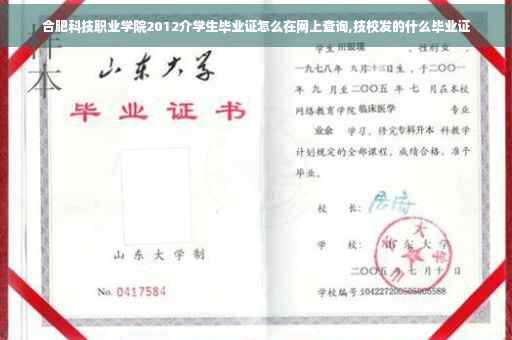 合肥科技职业学院2012介学生毕业证怎么在网上查询,技校发的什么毕业证
样本
山东大学
毕业证书
山东大学制
No. 0417584
学生
性别女,
一九七八年 九月十三日生,于二〇〇一
年 九 月至二〇〇五 年 七 月在本校
网络教育学院 临床医学 专业
业余 学习,修完专科升本 科教学
计划规定的全部课程,成绩合格,准予
毕业。
校 长:
学 校: 山东大学
二〇〇五 年 七 月 十 日
学校编号:104227200505005588